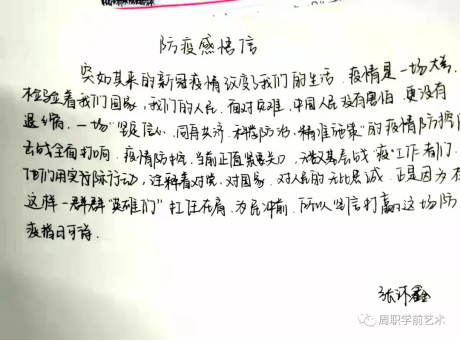 防疫感悟信
突如其来的新冠疫情改变了我们的生活,疫情是一场大考,
检验着我们国家,我们的人民,面对灾难,中国人民没有害怕,更没有
退缩,一场"坚定信心,同舟共济,科学防治,精准施策"的疫情防控阻
击战全面打响,疫情防控,当前正值紧要关头,无数基层战"疫"工作者们,
他们用实际行动,诠释着对党,对国家,对人民的无比忠诚,正是因为有
这样一群群"英雄们"扛责在肩,为民冲前,所以坚信打赢这场防
疫指日可待.
周职学前艺术